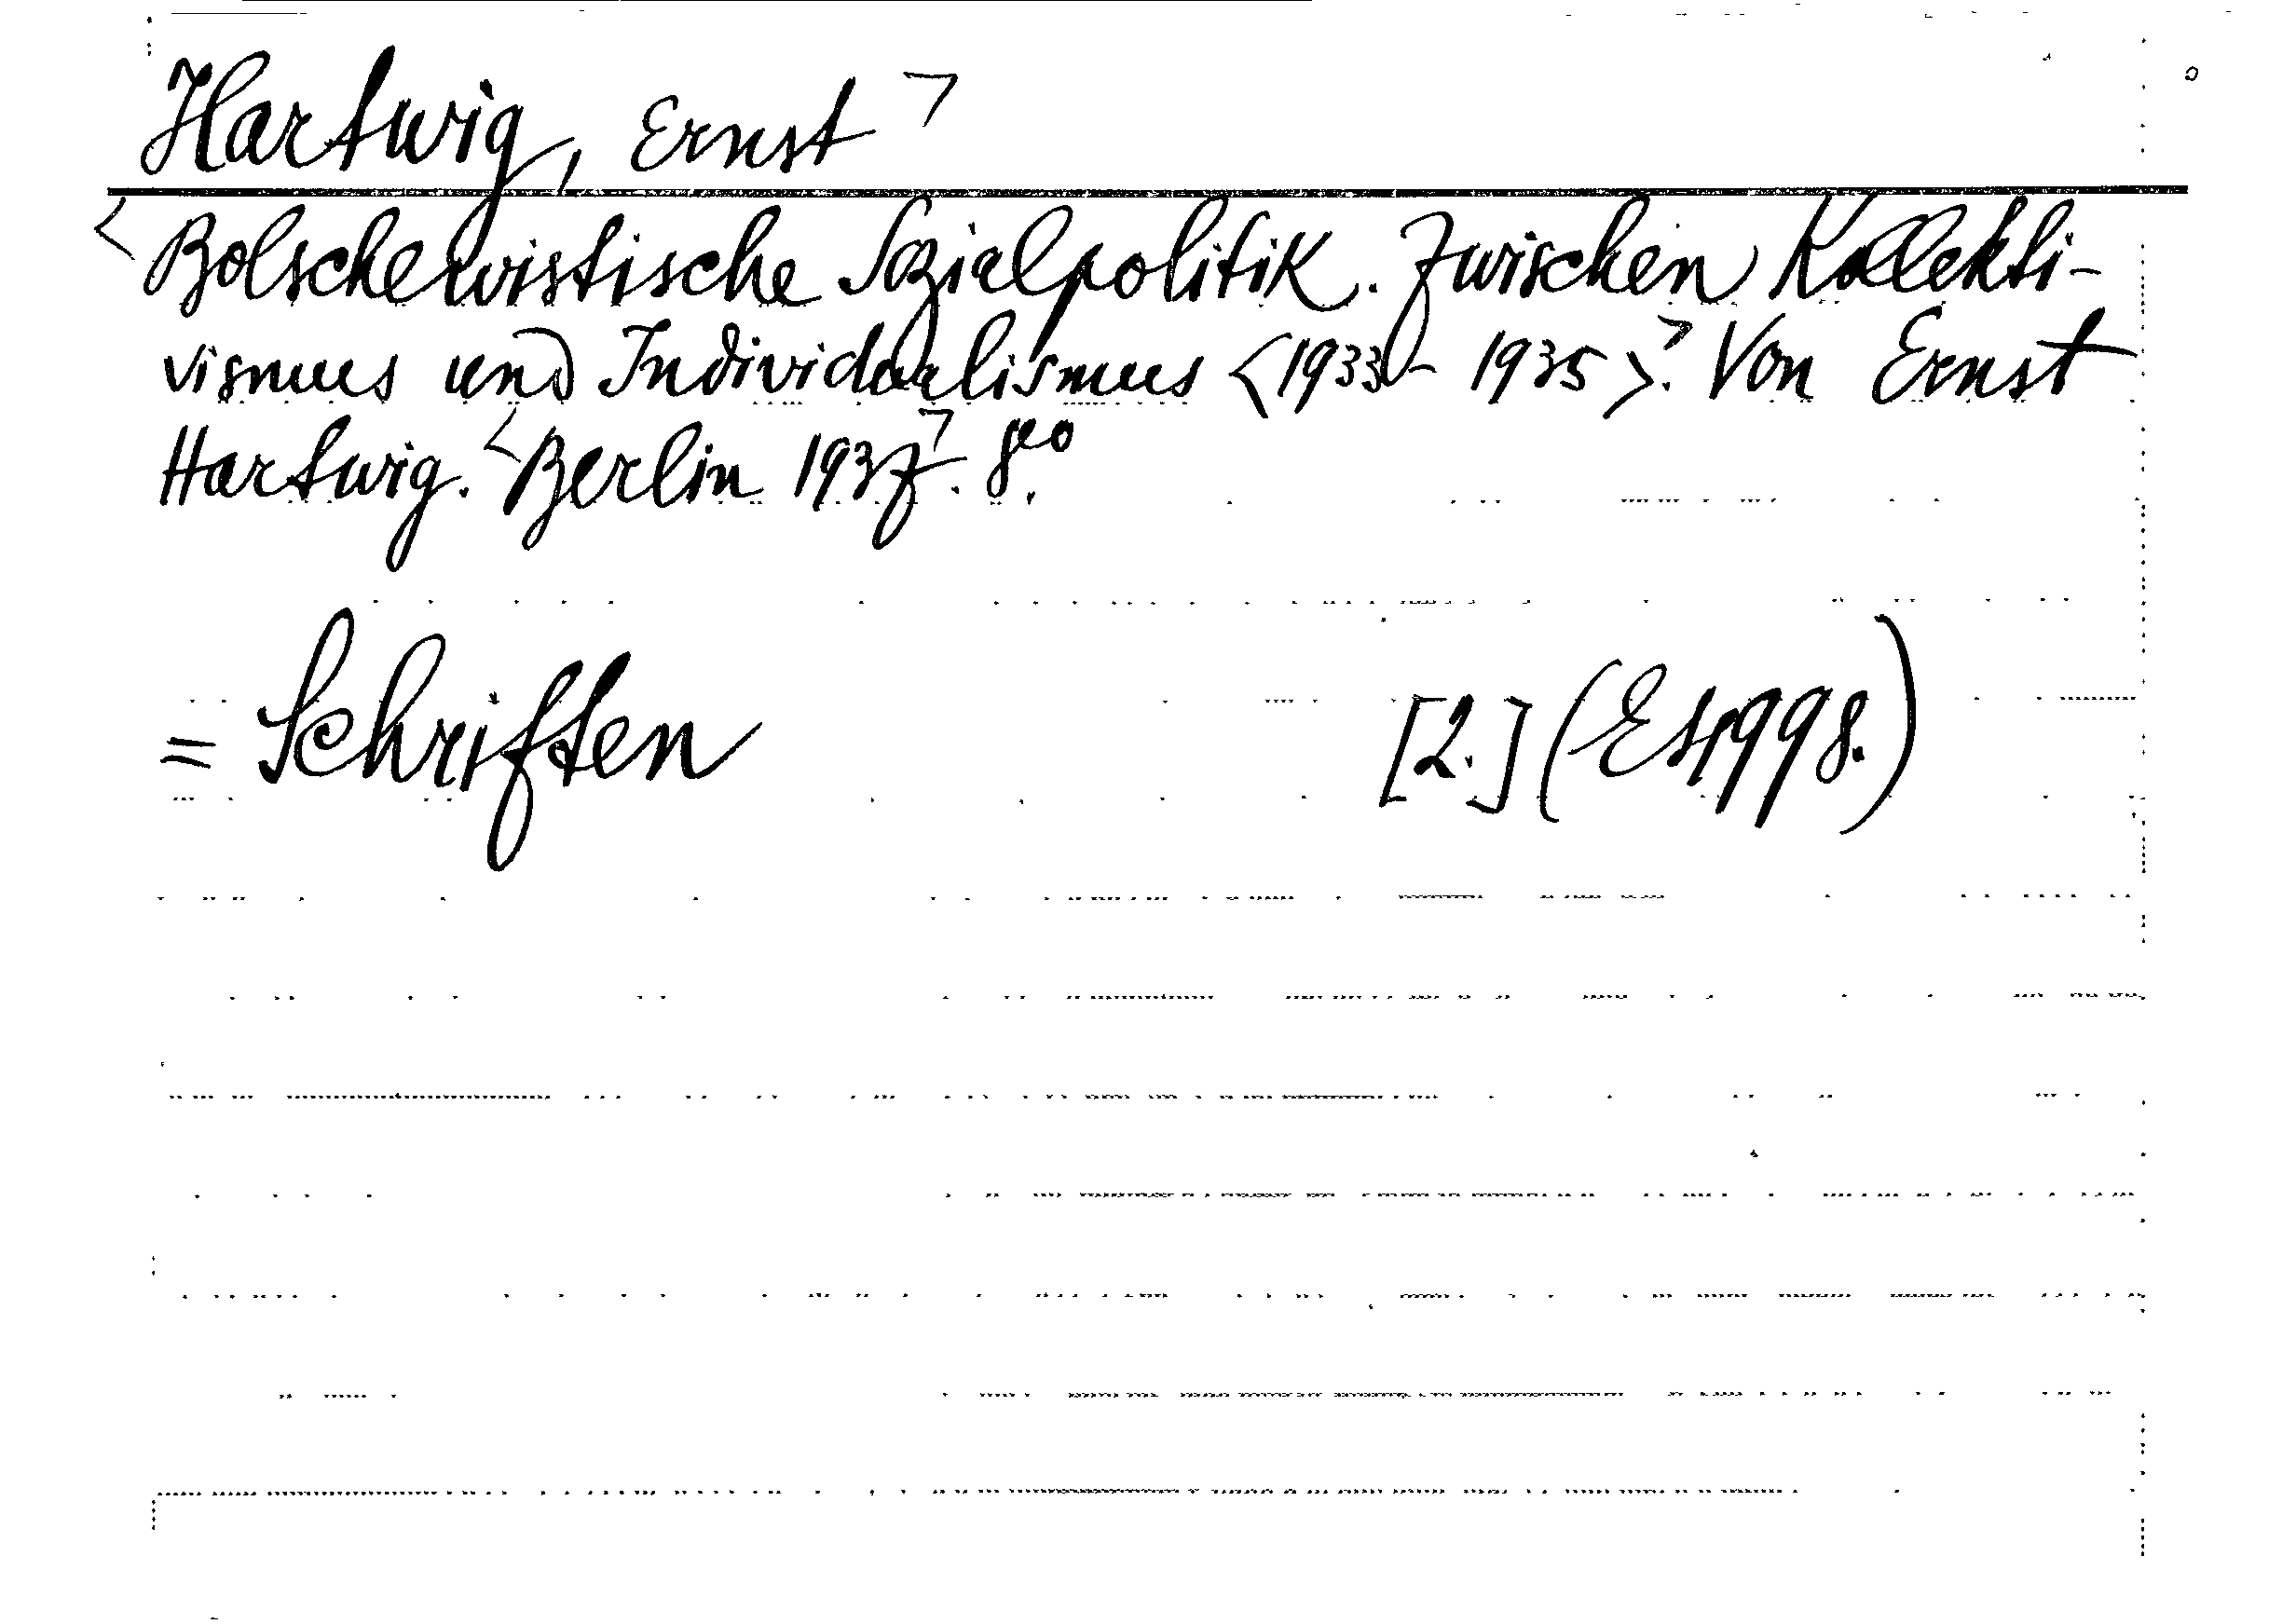 Hartwig, Ernst ⌝
<Bolschewistische Sozialpolitik. Zwischen Kollekti-
vismus und Individualismus <1933 - 1935>⌝. Von Ernst
Hartwig. <Berlin 1937⌝. 8vo.
= Schriften [2.] (Es 998.)